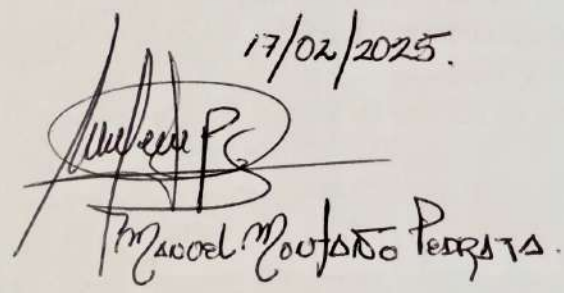 17/02/2025.
Manoel Montaño Pedraza.